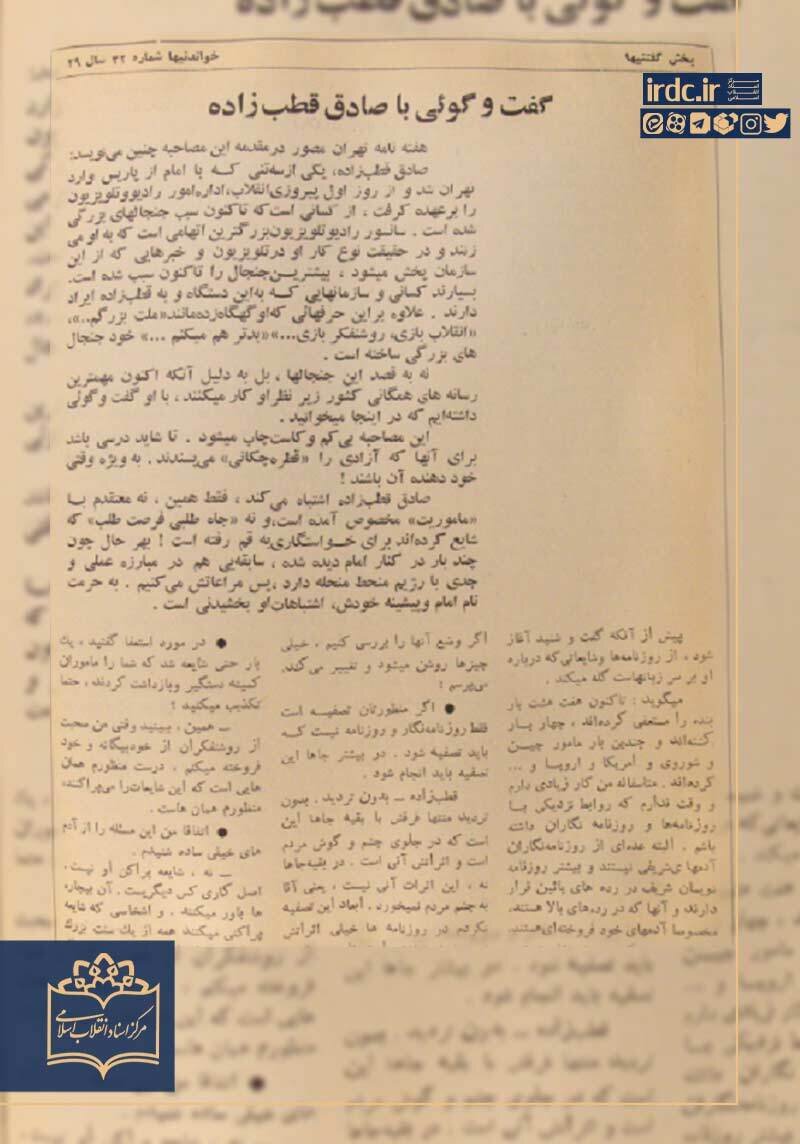 گفت و گوئی با صادق قطب‌زاده
irdc.ir
مرکز اسناد انقلاب اسلامی
بخش گفتنیها
خواندنیها شماره ۳۲ سال ۳۹
گفت و گوئی با صادق قطب‌زاده
هفته نامه تهران مصور در مقدمه این مصاحبه چنین می‌نویسد:
صادق قطب‌زاده، یکی از سه‌تنی که با امام از پاریس وارد
تهران شد و از روز اول پیروزی انقلاب، اداره امور رادیو و تلویزیون
را بر عهده گرفت، از کسانی است که تاکنون سبب جنجالهای بزرگی
شده است. سانسور رادیو تلویزیون بزرگترین اتهامی است که به او می
زنند و در حقیقت نوع کار او در تلویزیون و خبرهایی که از این
سازمان پخش میشود، بیشترین جنجال را تاکنون سبب شده است.
بسیارند کسانی و سازمانهایی که به‌این دستگاه و به قطب‌زاده ایراد
دارند. علاوه بر این حرفهائی که او گهگاه زده مانند «ملت بزرگم..»،
«انقلاب بازی، روشنفکر بازی...» «بدتر هم میکنم ...» خود جنجال
های بزرگی ساخته است.
نه به قصد این جنجالها، بل به دلیل آنکه اکنون مهمترین
رسانه های همگانی کشور زیر نظر او کار میکنند، با او گفت و گوئی
داشته‌ایم که در اینجا میخوانید.
این مصاحبه بی‌کم و کاست چاپ میشود. تا شاید درسی باشد
برای آنها که آزادی را «قطره‌چکانی» می‌پسندند. به ویژه وقتی
خود دهنده آن باشند!
صادق قطب‌زاده اشتباه می‌کند، فقط همین، نه معتقدم بـا
«ماموریت» مخصوص آمده است، و نه «جاه طلبی فرصت طلب» که
شایع کرده‌اند برای خـواستگاری به قم رفته است! بهر حال چون
چند بار در کنار امام دیده شده، سابقه‌یی هم در مبارزه عملی و
جدی با رژیم منحط منحله دارد، پس مراعاتش می‌کنیم. به حرمت
نام امام و پیشینه خودش، اشتباهات او بخشیدنی است.
پیش از آنکه گفت و شنید آغاز
شود، از روزنامه‌ها وشایعاتی‌که درباره
او بر سر زبانهاست گله میکند.
میگوید: تاکنون هفت هشت بار
بنده را مستعفی کرده‌اند، چهار بـار
کشته‌اند و چندین بار مامور چیـن
و شوروی و آمریکا و اروپـا و ...
کرده‌اند. متاسفانه من کار زیادی دارم
و وقت ندارم که روابط نزدیکی بـا
روزنامه‌ها و روزنامه نگاران داشته
باشم. البته عده‌ای از روزنامه‌نگاران
آدمهای شریفی نیستند و بیشتر روزنامه
نویسان شریف در رده های پائین قرار
دارند و آنها که در رده‌های بالا هستند،
مخصوصا آدمهای خود فروخته‌ای‌هستند.
اگر وضع آنها را بررسی کنیم، خیلی
چیزها روشن میشود و تغییر می‌کند.
می‌پرسم:
● اگر منظورتان تصفیـه است
فقط روزنامه‌نگار و روزنامه نیست کـه
باید تصفیه شود. در بیشتر جاها این
تصفیه باید انجام شود.
قطب‌زاده ــ بدون تردید. بـدون
تردید منتها فرقش با بقیه جاها این
است که در جلوی چشم و گوش مردم
است و اثراتش آنی است. در بقیه‌جاها
نه، این اثرات آنی نیست، یعنی آقا
به چشم مردم نمیخورد. ابعاد این تصفیه
نکردم در روزنامه ها خیلی اثراتش
● در مورد استعفا گفتید، یك
بار حتی شایعه شد که شما را ماموران
کمیته دستگیر وبازداشت کردند، حتما
تکذیب میکنید!
ــ همین، ببینید وقتی من صحبت
از روشنفکران از خودبیگانه و خود
فروخته میکنم. درست منظورم همان
هایی است که این شایعات‌را می‌پراکنند
منظورم همان هاست.
● اتفاقا من این مسئله را از آدم
های خیلی ساده شنیدم.
ــ نه، شایعه پراکن او نیست،
اصل کاری کس دیگریست. آن بیچاره
ها باور میکنند. و اشخاصی که شایعه
پراکنی میکنند همه از یك سنت بزرك
مرکز اسناد انقلاب اسلامی